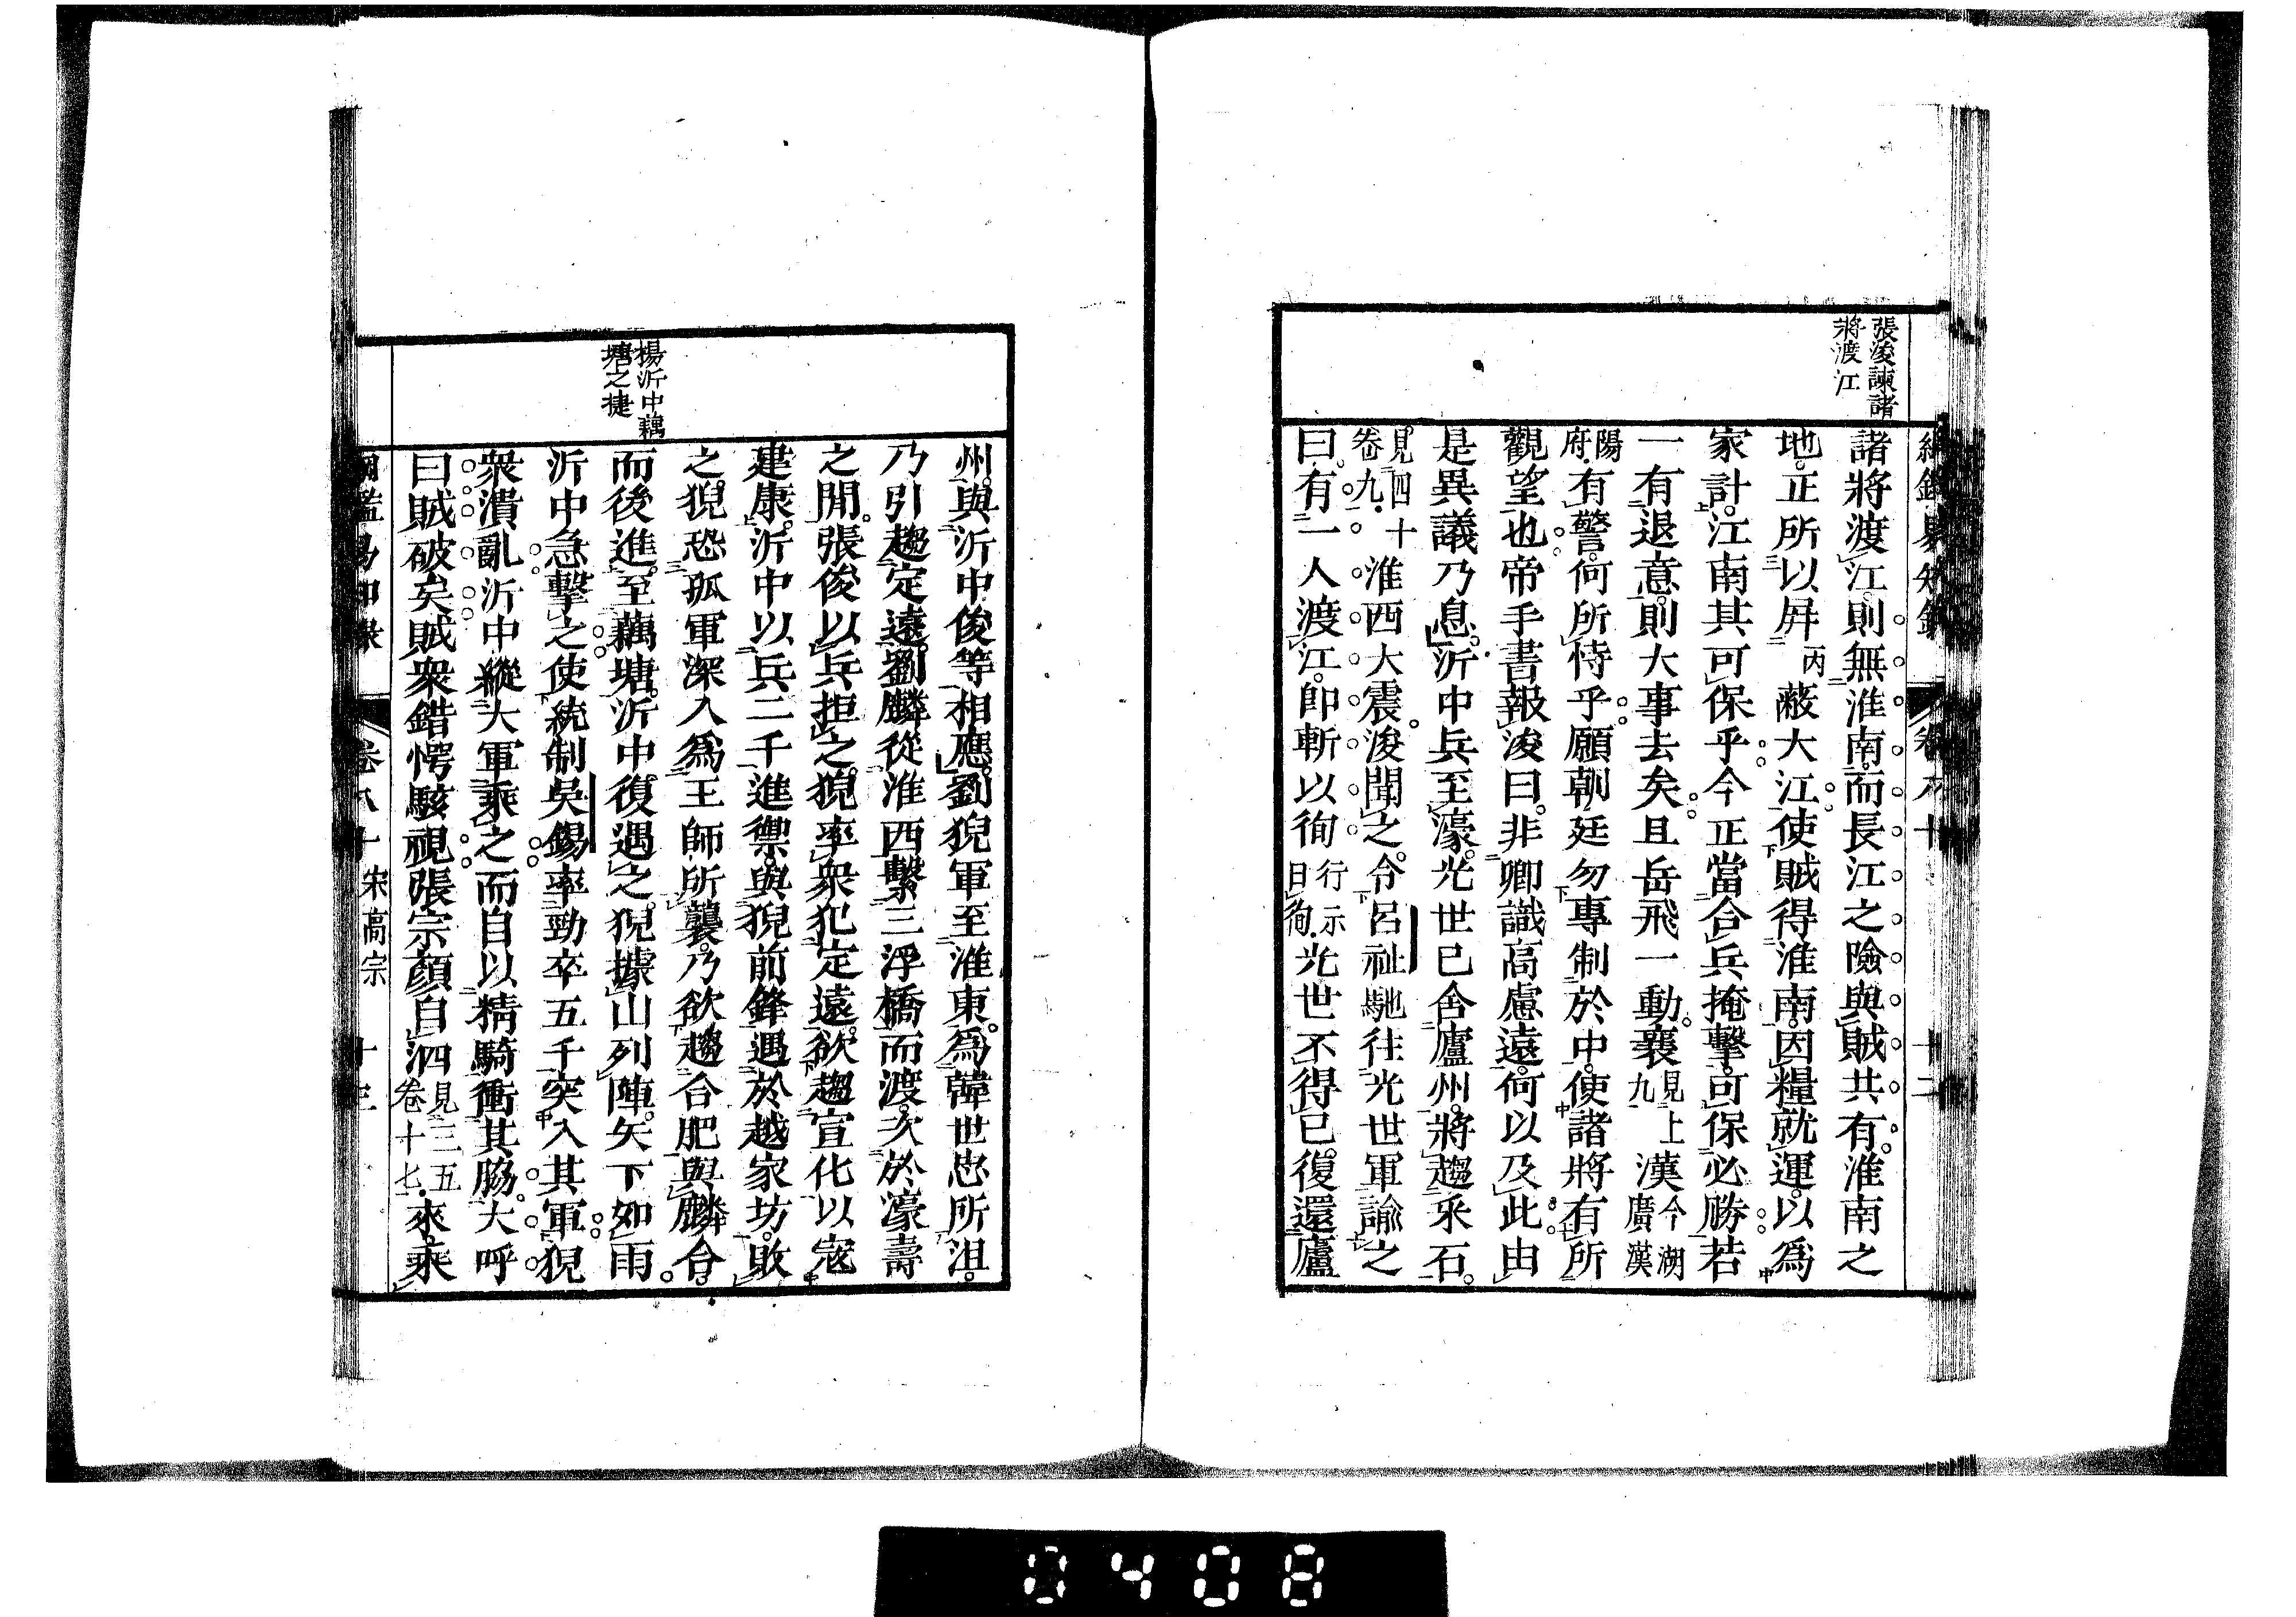 張浚諫諸
將渡江
諸將渡江則無淮南而長江之險與賊共有淮南之
地正所以屛丙蔽大江使賊得淮南因糧就運以爲
家計江南其可保乎今正當合兵掩擊可保必勝若
一有退意則大事去矣且岳飛一動襄見上九漢今湖廣漢
陽府有警何所恃乎願朝廷勿專制於中使諸將有所
觀望也帝手書報浚曰非卿識高慮遠何以及此由
是異議乃息沂中兵至濠光世已舍廬州將趨采石
見四十卷九淮西大震浚聞之令呂祉馳往光世軍諭之
曰有一人渡江卽斬以徇行示曰徇光世不得已復還廬
楊沂中藕
塘之捷
州與沂中俊等相應劉猊軍至淮東爲韓世忠所沮
乃引趨定遠劉麟從淮西繫三浮橋而渡次於濠壽
之閒張俊以兵拒之猊率衆犯定遠欲趨宣化以寇
建康沂中以兵二千進禦與猊前鋒遇於越家坊敗
之猊恐孤軍深入爲王師所襲乃欲趨合肥與麟合
而後進至藕塘沂中復遇之猊據山列陣矢下如雨
沂中急擊之使統制吳錫率勁卒五千突入其軍猊
衆潰亂沂中縱大軍乘之而自以精騎衝其脇大呼
曰賊破矣賊衆錯愕駭視張宗顏自泗見三五卷十七來乘
綱鑑易知錄 卷八十 宋高宗 十三
0408